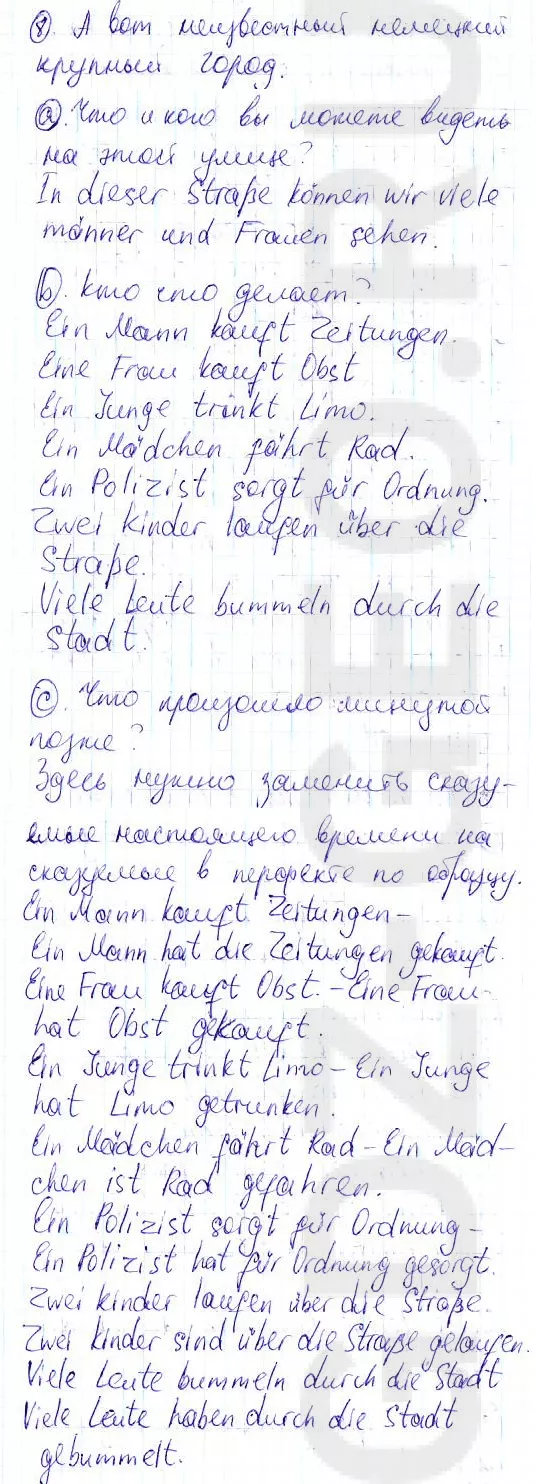 8. А вот неизвестный немецкий
крупный город.
a. Что и кого вы можете видеть
на этой улице?
In dieser Straße können wir viele
männer und Frauen sehen.
b. Кто что делает?
Ein Mann kauft Zeitungen.
Eine Frau kauft Obst
Ein Junge trinkt Limo.
Ein Mädchen fährt Rad.
Ein Polizist sorgt für Ordnung.
Zwei kinder laufen über die
Straße.
Viele Leute bummeln durch die
Stadt.
c. Что произошло минутой
позже?
Здесь нужно заменить сказу-
емые настоящего времени на
сказуемые в перфекте по образцу.
Ein Mann kauft Zeitungen-
Ein Mann hat die Zeitungen gekauft.
Eine Frau kauft Obst.-Eine Frau
hat Obst gekauft.
Ein Junge trinkt Limo-Ein Junge
hat Limo getrunken.
Ein Mädchen fährt Rad-Ein Mäd-
chen ist Rad gefahren.
Ein Polizist sorgt für Ordnung-
Ein Polizist hat für Ordnung gesorgt.
Zwei kinder laufen über die Straße.
Zwei kinder sind über die Straße gelaufen.
Viele Leute bummeln durch die Stadt
Viele Leute haben durch die Stadt
gebummelt.
GDZ-GEO.RU